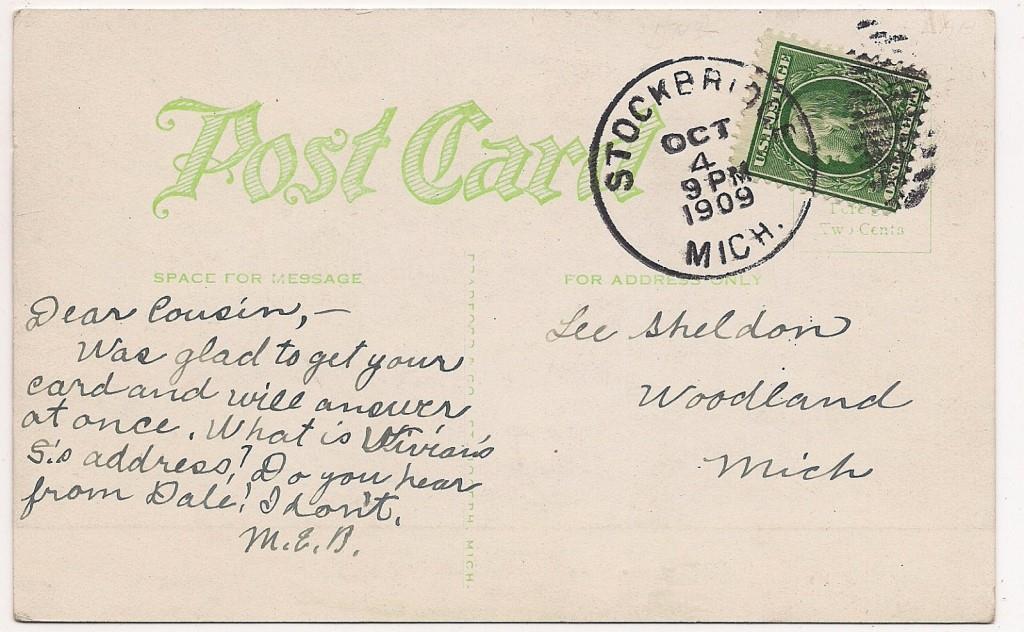 Post Card
STOCKBRIDGE
OCT
4
9 PM
1909
MICH.
U.S. POSTAGE
Two Cents
SPACE FOR MESSAGE
FOR ADDRESS ONLY
Dear Cousin,—
Was glad to get your
card and will answer
at once. What is Vivian's
S.'s address? Do you hear
from Dale? I don't.
M.E.B.
Lee Sheldon
Woodland
Mich
MICH.